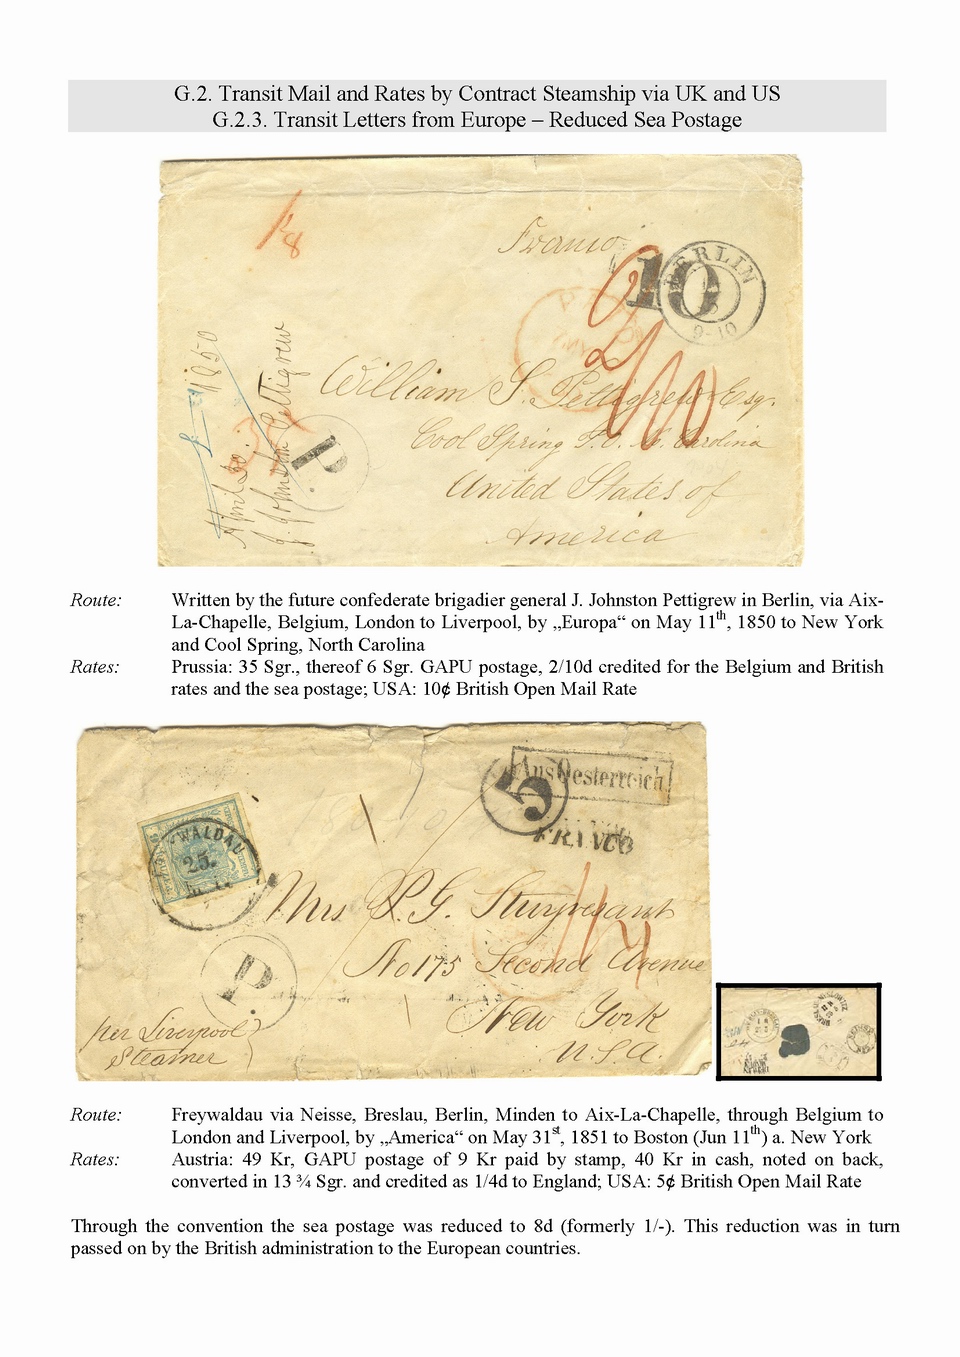 G.2. Transit Mail and Rates by Contract Steamship via UK and US
G.2.3. Transit Letters from Europe – Reduced Sea Postage
1/8
Franco
10
BERLIN
9-10
William S. Pettigrew Esq.
Cool Spring P.O. N. Carolina
United States of
America
P.
1850
J. Johnston Pettigrew
Route: Written by the future confederate brigadier general J. Johnston Pettigrew in Berlin, via Aix-
La-Chapelle, Belgium, London to Liverpool, by „Europa“ on May 11th, 1850 to New York
and Cool Spring, North Carolina
Rates: Prussia: 35 Sgr., thereof 6 Sgr. GAPU postage, 2/10d credited for the Belgium and British
rates and the sea postage; USA: 10¢ British Open Mail Rate
Aus Oesterreich
5
FRANCO
WALDAU
25.
Mrs P. G. Stuyvesant
No 175 Second Avenue
New York
U.S.A.
P.
per Liverpool
Steamer
1/4
Route: Freywaldau via Neisse, Breslau, Berlin, Minden to Aix-La-Chapelle, through Belgium to
London and Liverpool, by „America“ on May 31st, 1851 to Boston (Jun 11th) a. New York
Rates: Austria: 49 Kr, GAPU postage of 9 Kr paid by stamp, 40 Kr in cash, noted on back,
converted in 13 ¾ Sgr. and credited as 1/4d to England; USA: 5¢ British Open Mail Rate
Through the convention the sea postage was reduced to 8d (formerly 1/-). This reduction was in turn
passed on by the British administration to the European countries.